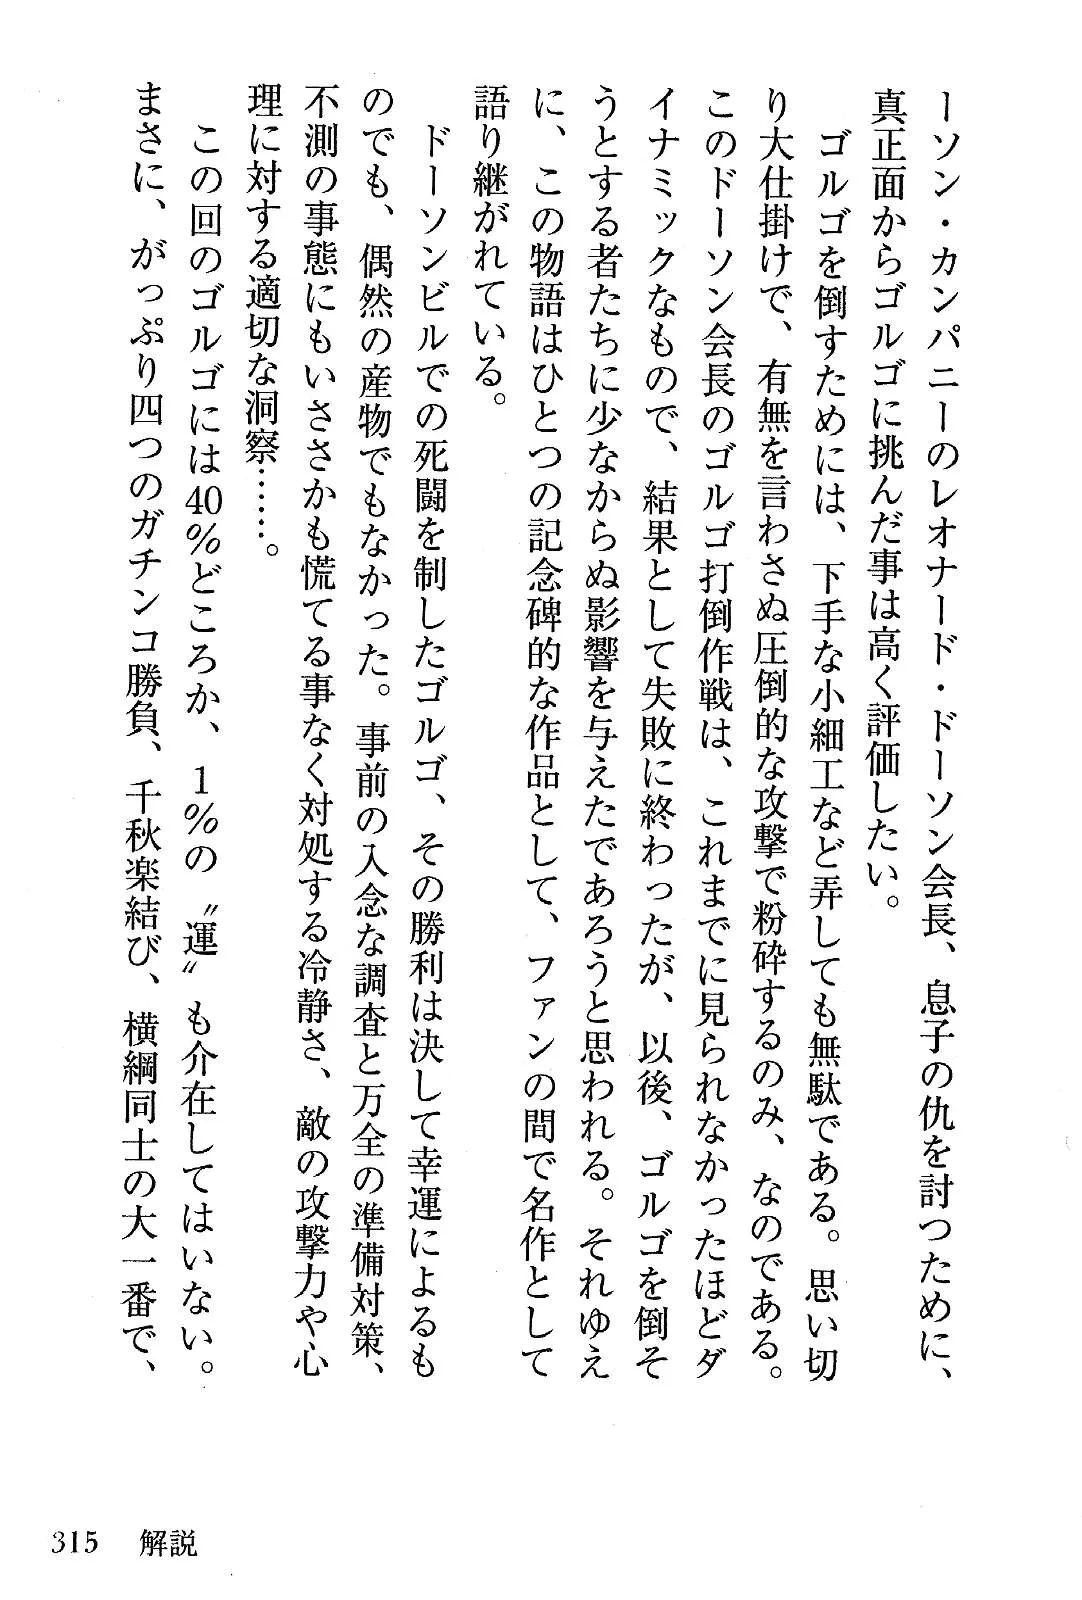 ーソン・カンパニーのレオナード・ドーソン会長、息子の仇を討つために、
真正面からゴルゴに挑んだ事は高く評価したい。
　ゴルゴを倒すためには、下手な小細工など弄しても無駄である。思い切
り大仕掛けで、有無を言わさぬ圧倒的な攻撃で粉砕するのみ、なのである。
このドーソン会長のゴルゴ打倒作戦は、これまでに見られなかったほどダ
イナミックなもので、結果として失敗に終わったが、以後、ゴルゴを倒そ
うとする者たちに少なからぬ影響を与えたであろうと思われる。それゆえ
に、この物語はひとつの記念碑的な作品として、ファンの間で名作として
語り継がれている。
　ドーソンビルでの死闘を制したゴルゴ、その勝利は決して幸運によるも
のでも、偶然の産物でもなかった。事前の入念な調査と万全の準備対策、
不測の事態にもいささかも慌てる事なく対処する冷静さ、敵の攻撃力や心
理に対する適切な洞察……。
　この回のゴルゴには40%どころか、1%の〝運〟も介在してはいない。
まさに、がっぷり四つのガチンコ勝負、千秋楽結び、横綱同士の大一番で、
315　解説